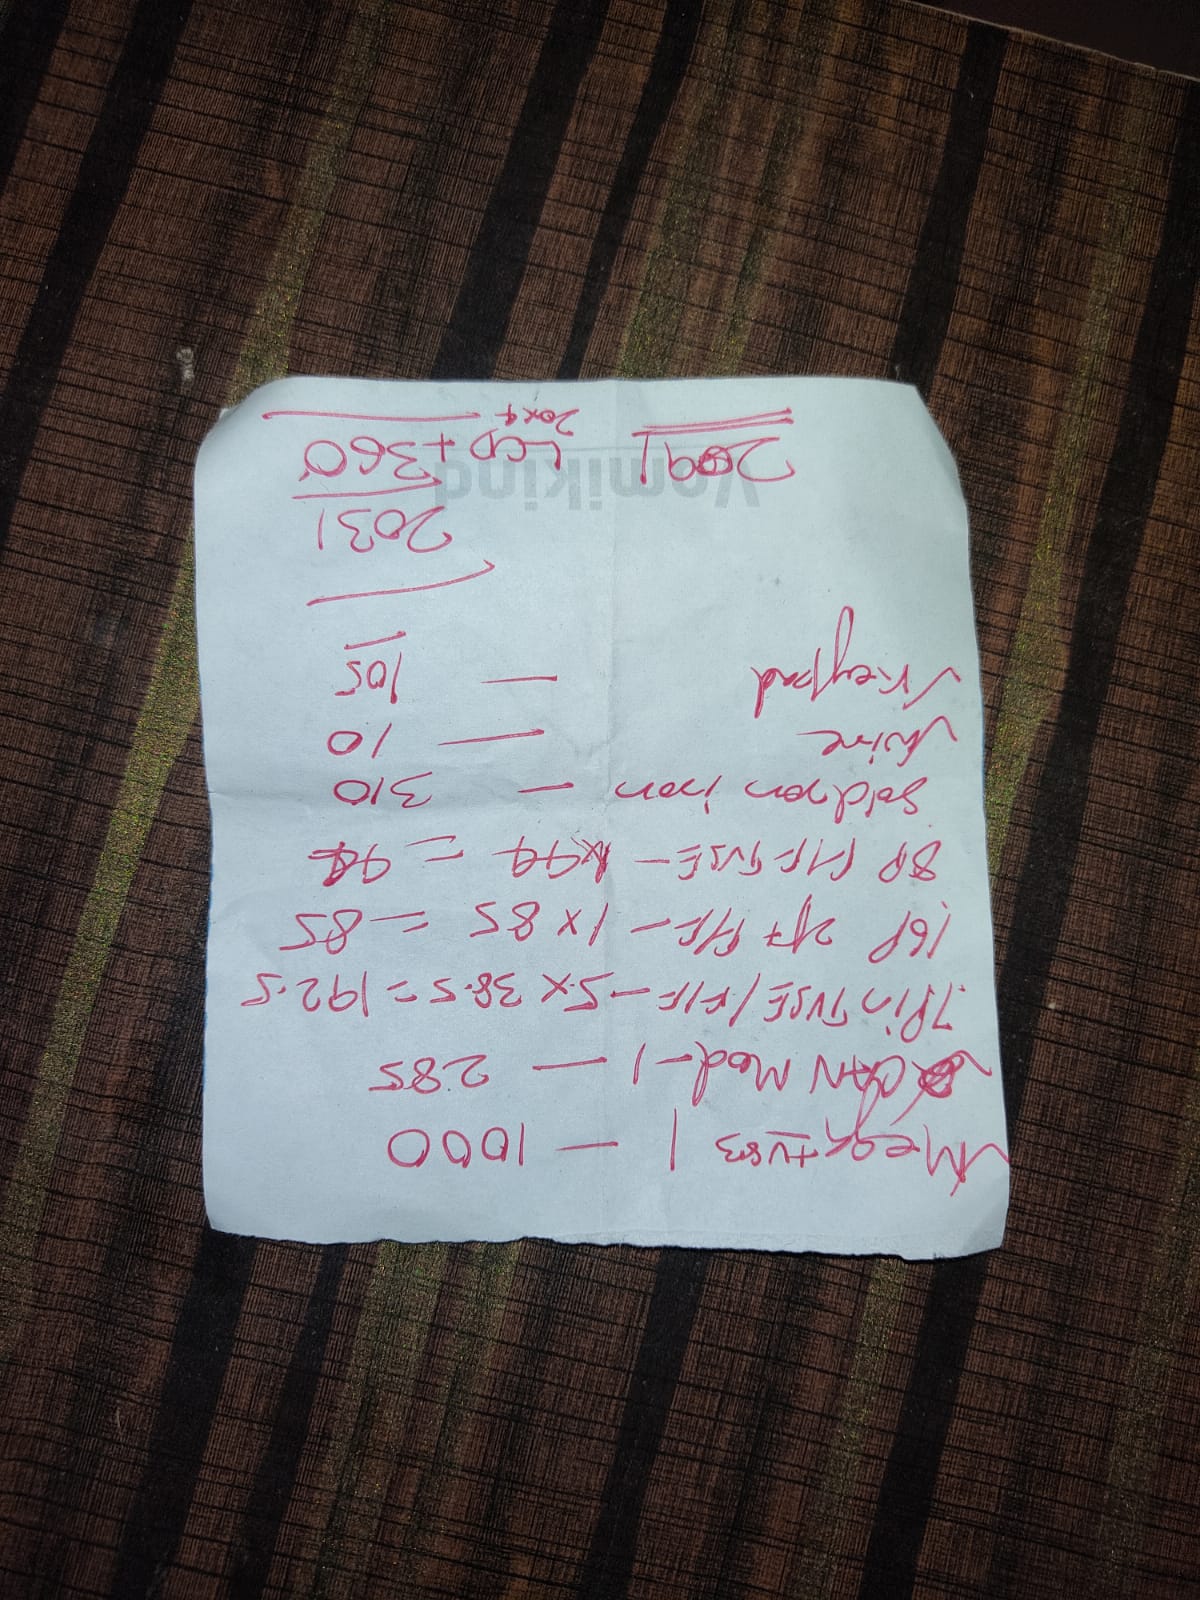 Mega + USB 1 — 1000
CAN Mod - 1 — 285
7Pin TVSE/F/F - 5 x 38.5 = 192.5
16P 2pt F/F - 1 x 85 = 85
8P F/F TVSE - 1x44 = 44
Soldron iron — 310
Wire — 10
Keypad — 105
2031
LCD + 360
20x4
2091
Vomikind